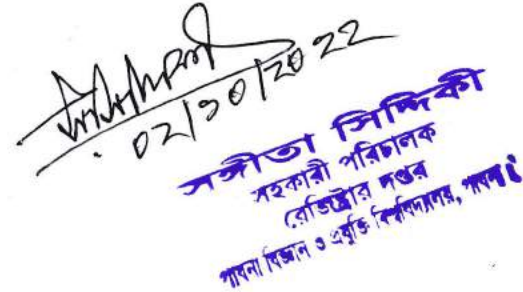 02/10/2022
সঙ্গীতা সিদ্দিকী
সহকারী পরিচালক
রেজিস্ট্রার দপ্তর
পাবনা বিজ্ঞান ও প্রযুক্তি বিশ্ববিদ্যালয়, পাবনা।